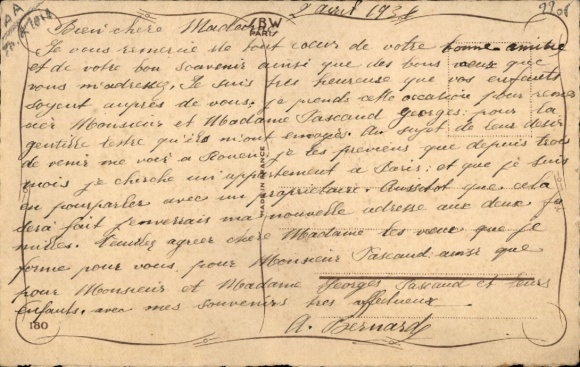 2 avril 193
2201
AA
LBW
PARIS
Bien chère Madame
Je vous remercie de tout cœur de votre bonne amitié
et de votre bon souvenir ainsi que des bons vœux que
vous m'adressez. Je suis très heureuse que vos enfants
soyent auprès de vous, je prends cette occation pour remer
cier Monsieur et Madame Pascaud Georges pour la
gentille lettre qu'ils m'ont envoyés. Au sujet de leur désir
de venir me voir a Rouen je les préviens que depuis trois
mois je cherche un appartement à Paris; et que je suis
en pourparler avec un propriétaire. Aussitot que cela
sera fait j'enverrais ma nouvelle adresse aux deux fa
milles. Veuillez agréer chère Madame les vœux que je
forme pour vous, pour Monsieur Pascaud ainsi que
pour Monsieur et Madame Georges Pascaud et leurs
enfants. avec mes souvenirs très affectueux
A. Bernard
180
MADE IN FRANCE